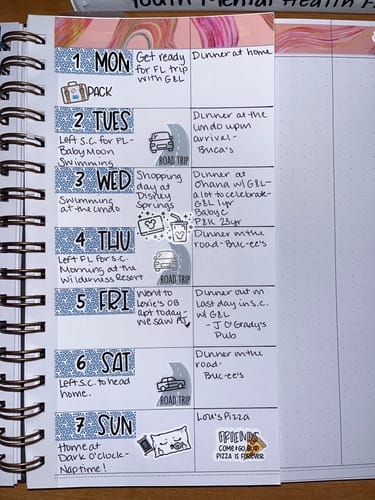 Youth Mental Health
1 MON
PACK
Get ready
for FL trip
with G&L
Dinner at home
2 TUES
Left S.C. for FL-
BabyMoon
Swimming
ROAD TRIP
Dinner at the
condo upon
arrival-
Buca's
3 WED
Swimming
at the condo
Shopping
day at
Disney
Springs
Dinner at
Ohana w/ G&L-
a lot to celebrate-
G&L 1yr
Baby C
P&K 23yr
4 THU
Left FL for S.C.
Morning at the
Wilderness Resort
ROAD TRIP
Dinner on the
road- Buc-ee's
5 FRI
Went to
Lexie's OB
apt today-
we saw AJ
Dinner out on
last day in S.C.
w/ G&L
- J O'Grady's
Pub
6 SAT
Left S.C. to head
home.
ROAD TRIP
Dinner on the
road-
Buc-ee's
7 SUN
Home at
Dark O'clock-
Naptime!
Lou's Pizza
FRIENDS
COME & GO BUT
PIZZA IS FOREVER